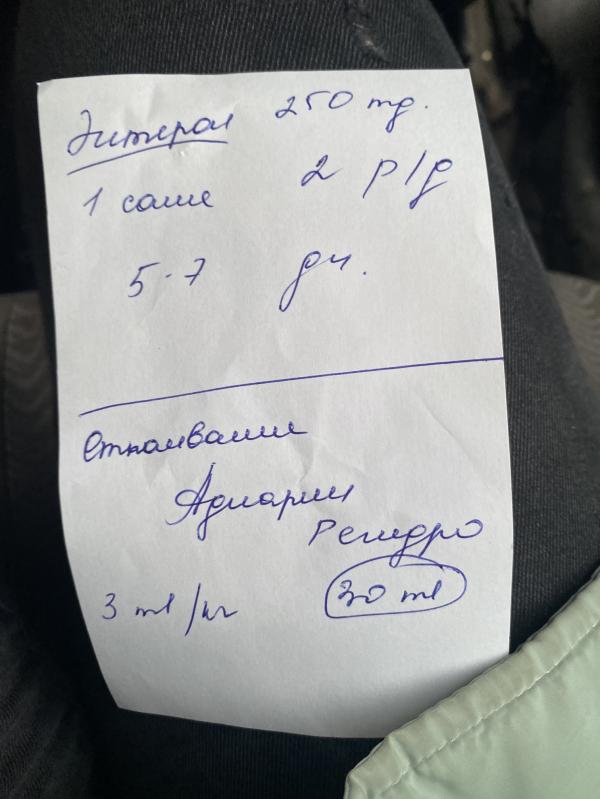 Энтерол 250 mg.
1 саше 2 р/д
5-7 дн.
Отпаивание
Адиарин
Регидро
3 ml/кг 30 ml